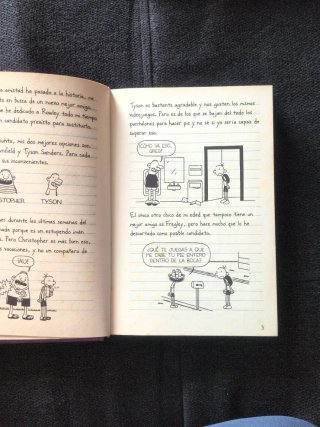 amistad ha pasado a la historia, me
en busca de un nuevo mejor amigo.
he dedicado a Rowley todo mi tiempo
candidato previsto para sustituirlo.
mis dos mejores opciones son
Tyson Sanders. Para cada
sus inconvenientes.
STOPHER TYSON
durante las últimas semanas del
porque es un estupendo imán
Pero Christopher es más bien eso,
vacaciones, y no un compañero de
¡VALE!
Tyson es bastante agradable y nos gustan los mismos
videojuegos. Pero es de los que se bajan del todo los
pantalones para hacer pis y no sé si yo sería capaz de
superar eso.
¿CÓMO VA ESO,
GREG?
El único otro chico de mi edad que tampoco tiene un
mejor amigo es Fregley, pero hace mucho que lo
he descartado como posible candidato.
¿QUÉ TE JUEGAS A QUE
ME CABE TU PIE ENTERO
DENTRO DE LA BOCA?
5